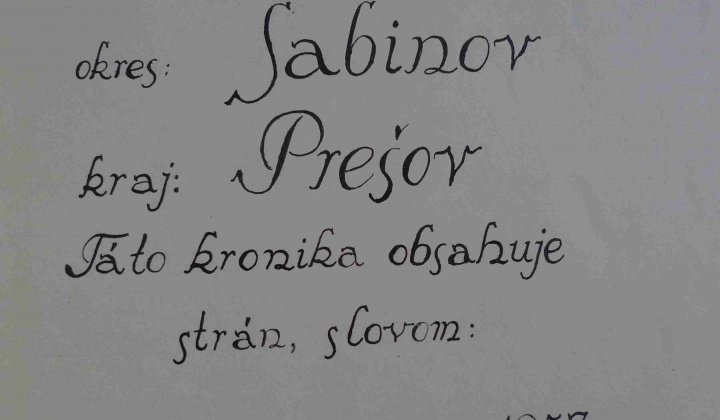 okres: Sabinov
kraj: Prešov
Táto kronika obsahuje
strán, slovom: